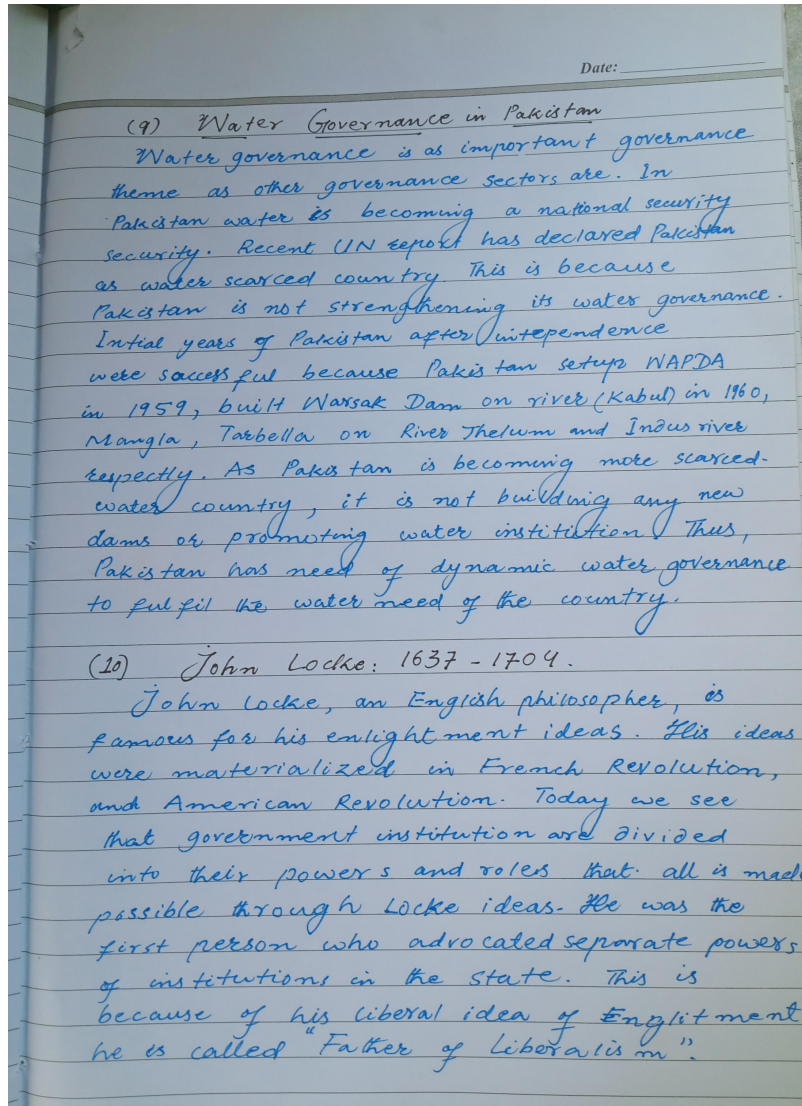 Date:
(9) Water Governance in Pakistan
Water governance is as important governance
theme as other governance sectors are. In
Pakistan water is becoming a national security
security. Recent UN report has declared Pakistan
as water scarced country. This is because
Pakistan is not strengthening its water governance.
Intial years of Pakistan after intependence
were saccess ful because Pakistan setup WAPDA
in 1959, built Warsak Dam on river (Kabul) in 1960,
Mangla, Tarbella on River Jhelum and Indus river
respectly. As Pakistan is becoming more scarced-
water country, it is not building any new
dams or promoting water institution. Thus,
Pakistan has need of dynamic water governance
to fulfil the water need of the country.
(10) John Locke: 1637 - 1704.
John Locke, an English philosopher, is
famous for his enlightment ideas. His ideas
were materialized in French Revolution,
and American Revolution. Today we see
that government institution are divided
into their powers and roles that. all is made
possible through Locke ideas. He was the
first person who advocated separate powers
of institutions in the state. This is
because of his liberal idea of Englitment
he is called "Father of Liberalism".